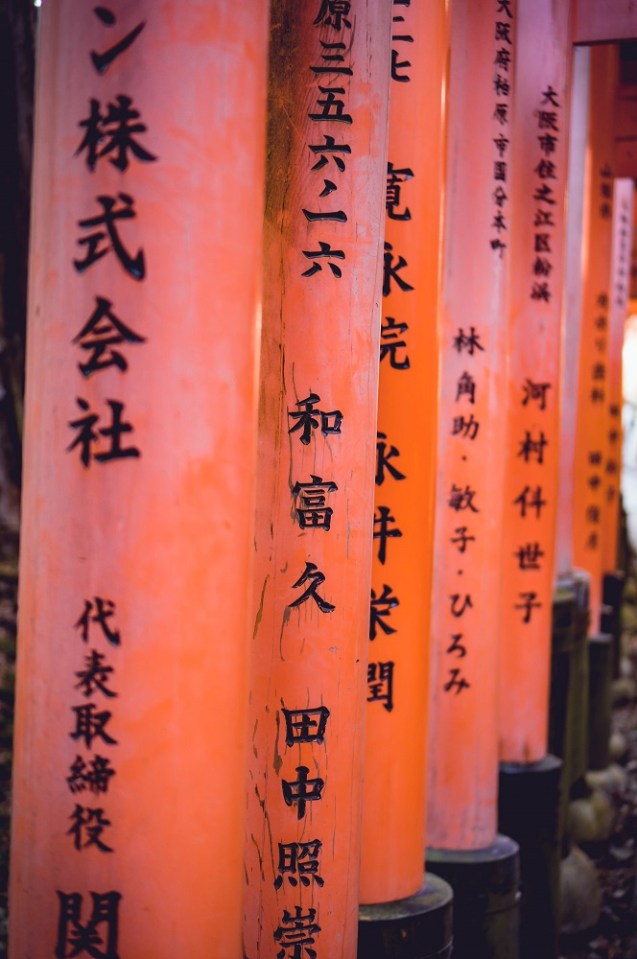 ン株式会社 代表取締役 関
原三五六ノ一六 和富久 田中照崇
二七 寛永院 永井栄潤
大阪府柏原市国分本町 林角助・敏子・ひろみ
大阪市住之江区粉浜 河村伴世子